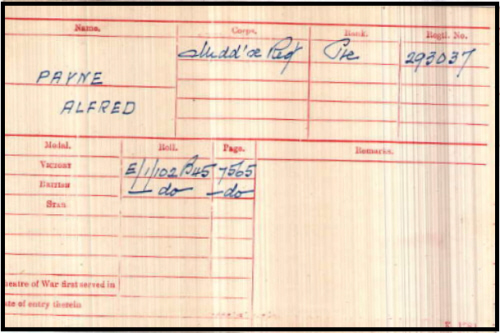 Name. Corps. Rank. Regtl. No.
Midd'x Reg^t Pte 293037
PAYNE
ALFRED
Medal. Roll. Page. Remarks.
Victory E/1/102 B45 7565
British — do — do
Star
Theatre of War first served in
Date of entry therein